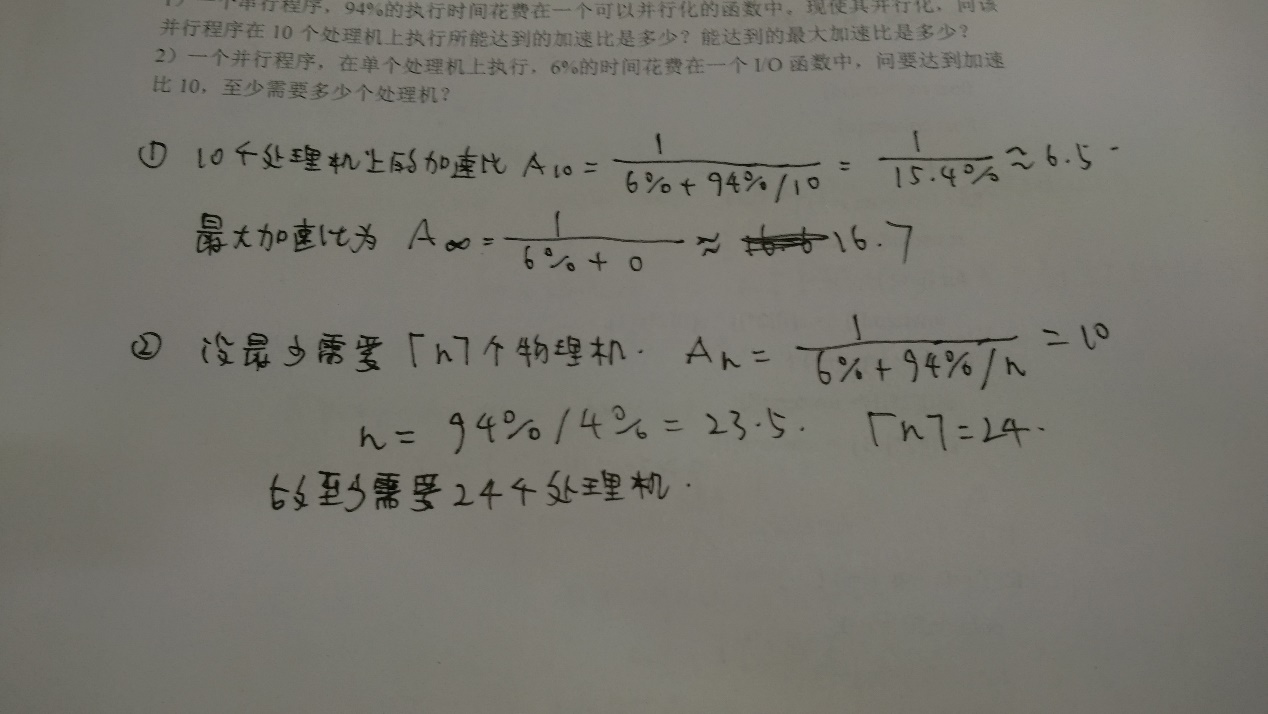 1）一个串行程序，94%的执行时间花费在一个可以并行化的函数中。现使其并行化，问该
并行程序在 10 个处理机上执行所能达到的加速比是多少？能达到的最大加速比是多少？
2）一个并行程序，在单个处理机上执行，6%的时间花费在一个 I/O 函数中，问要达到加速
比 10，至少需要多少个处理机？
① 10个处理机上的加速比 A₁₀ = 1/(6%+94%/10) = 1/15.4% ≈ 6.5
最大加速比为 A∞ = 1/(6%+0) ≈ 16.7
② 设最少需要「n7个物理机. Aₙ = 1/(6%+94%/n) = 10
n = 94%/4% = 23.5. 「n7=24.
故至少需要24个处理机.